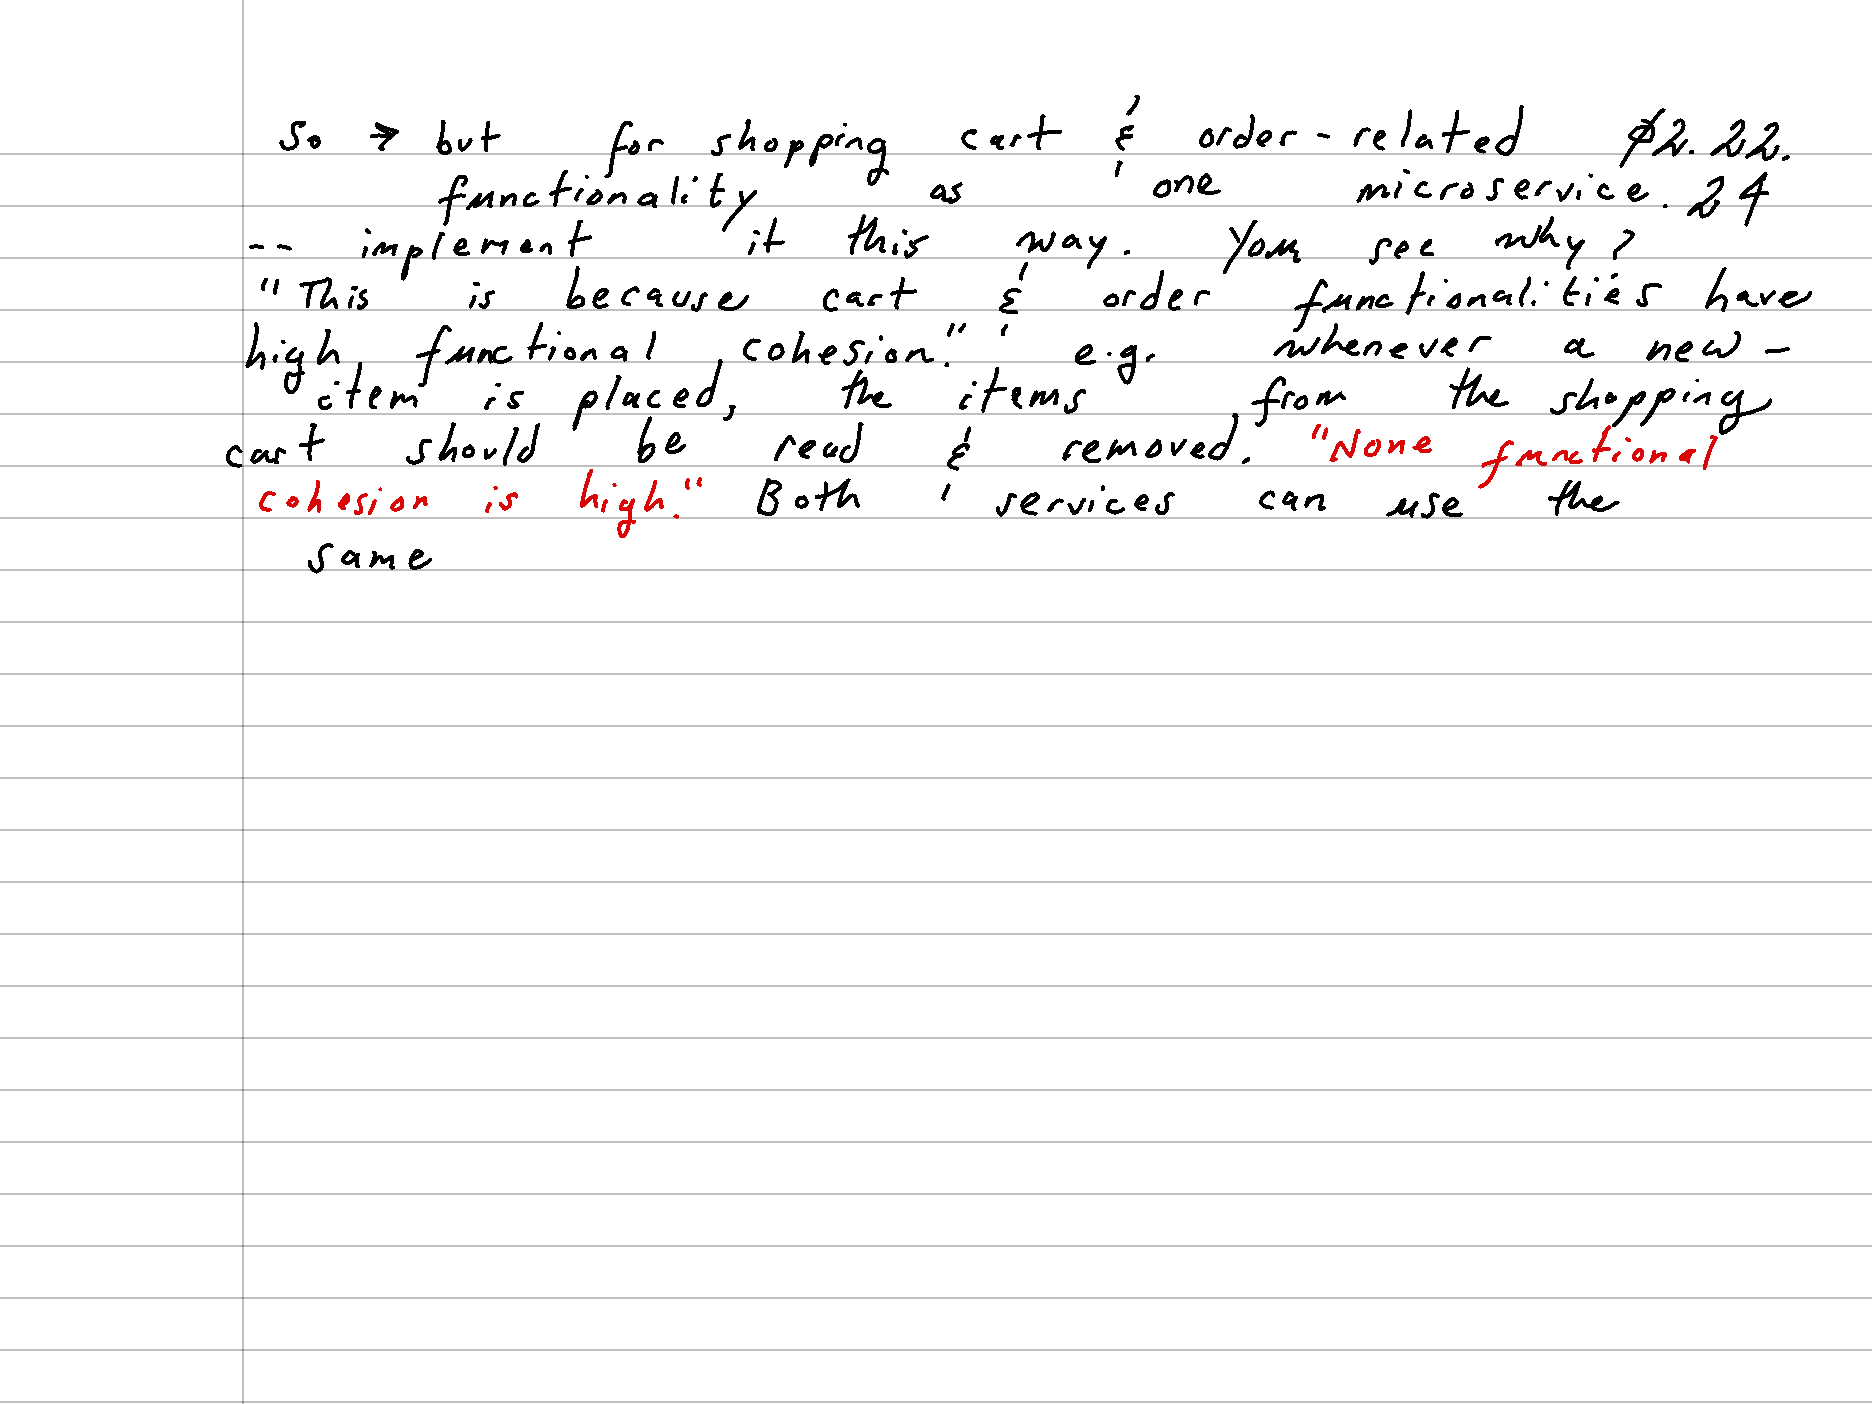 So → but for shopping cart & order-related 02.22.
functionality as one microservice. 24
-- implement it this way. You see why?
"This is because cart & order functionalities have
high functional cohesion." e.g. whenever a new -
item is placed, the items from the shopping
cart should be read & removed. "None functional
cohesion is high." Both services can use the
same